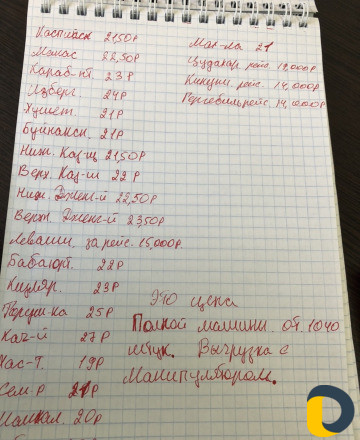 Каспийск 21,50р
Манас 22,50р
Караб-нт. 23р
Избербг. 24р
21р
Буйнакск. 21р
Ниж. Каз-щ 21,50р
Верх. Каз-щ 22р
Ниж. Дженг-й 22,50р
Верх. Дженг-й 23,50р
Леваши. за рейс. 15,000р.
Бабаюрт. 22р
Кизляр. 23р
Таруш-ка 25р
27р
Хас-Т. 19р
Сем-р 21р
Шамхал. 20р
Мах-ла 21
Цудахар рейс. 18,000р
Кикуни. рейс. 14,000р
Гергебиль рейс. 14,000р
Это цена
Полной машины. от 1040
штук. Выгрузка с
Манипулятором.